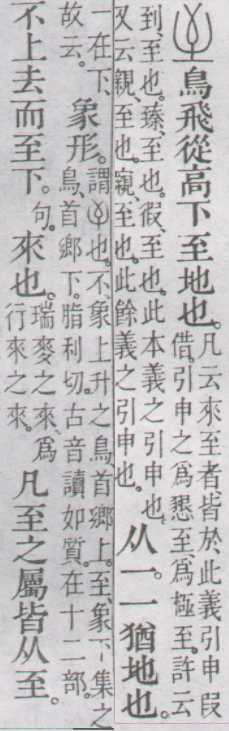 鳥飛從高下至地也。凡云來至者皆於此義引申叚借。引申之爲懇至、爲極至。許云
到、至也。臻、至也。徦、至也。此本義之引申也。又云親、至也。寴、至也。此餘義之引申也。从一。一猶地也。
一在下、故云。象形。謂也。不、象上升之鳥首鄉上。至、象下集之鳥首鄉下。脂利切。古音讀如質。在十二部。
不上去而至下。句。來也。瑞麥之來、爲行來之來。凡至之屬皆从至。